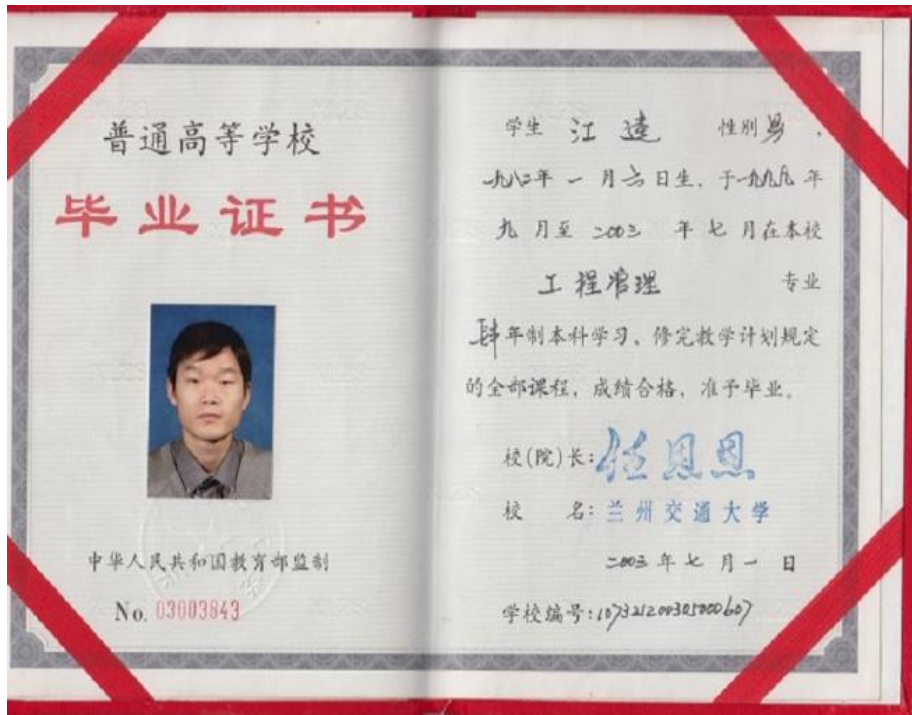 普通高等学校
毕业证书
中华人民共和国教育部监制
No. 03003843
学生 江达 性别 男 ,
一九八二年一月六日生, 于一九九九年
九月至二〇〇三年七月在本校
工程管理 专业
肆年制本科学习, 修完教学计划规定
的全部课程, 成绩合格, 准予毕业。
校(院)长: 任恩恩
校 名: 兰州交通大学
二〇〇三年七月一日
学校编号: 107321200305000607